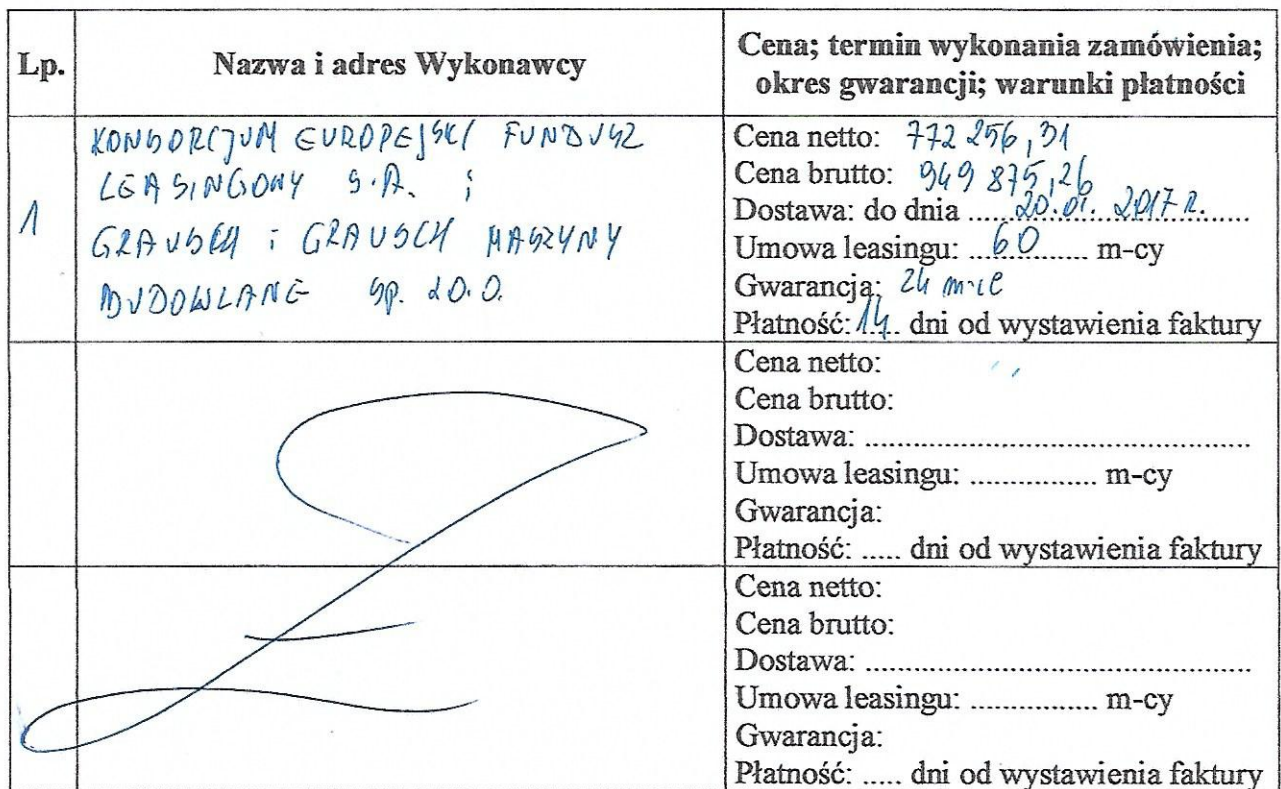 Lp.
Nazwa i adres Wykonawcy
Cena; termin wykonania zamówienia;
okres gwarancji; warunki płatności
1
KONSORCJUM EUROPEJSKI FUNDUSZ
LEASINGOWY S.A. i
GRAUSCH i GRAUSCH MASZYNY
BUDOWLANE Sp. z o.o.
Cena netto: 772 256,31
Cena brutto: 949 875,26
Dostawa: do dnia ......20.01. 2017 r.......
Umowa leasingu: ..60......... m-cy
Gwarancja: 24 m-ce
Płatność: 14.. dni od wystawienia faktury
Cena netto:
Cena brutto:
Dostawa: ................................................
Umowa leasingu: ................ m-cy
Gwarancja:
Płatność: ..... dni od wystawienia faktury
Cena netto:
Cena brutto:
Dostawa: ................................................
Umowa leasingu: ................ m-cy
Gwarancja:
Płatność: ..... dni od wystawienia faktury